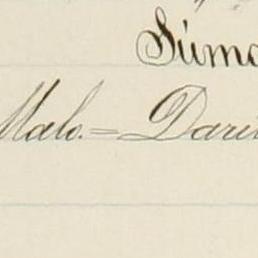 Súmo
Malo.= Dari